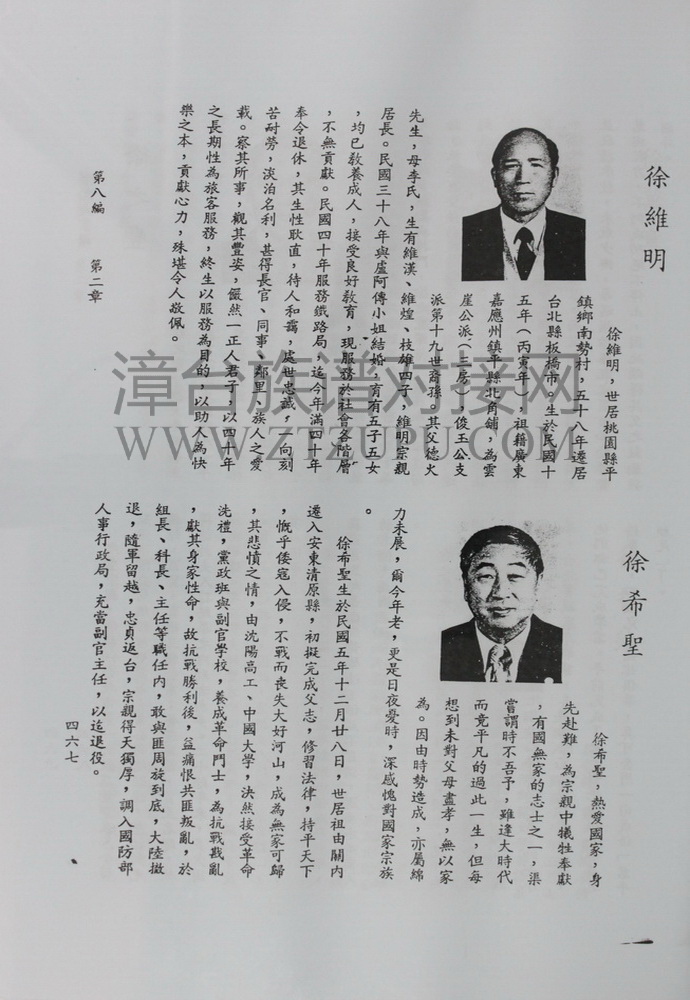 徐維明
徐維明，世居桃園縣平
鎮鄉南勢村，五十八年遷居
台北縣板橋市。生於民國十
五年（丙寅年），祖籍廣東
嘉應州鎮平縣北角鋪，為雲
崖公派（三房），俊玉公支
派第十九世裔孫。其父德火
先生，母李氏，生有維漢、維煌、枝雄四子，維明宗親
居長。民國三十八年與盧阿傳小姐結婚，育有五子五女
，均已敎養成人，接受良好敎育，現服務於社會各階層
，不無貢獻。民國四十年服務鐵路局，迄今年滿四十年
奉令退休，其生性耿直，待人和藹，處世忠誠，一向刻
苦耐勞，淡泊名利，甚得長官、同事、鄰里、族人之愛
載。察其所事，觀其豐姿，儼然一正人君子，以四十年
之長期性為旅客服務，終生以服務為目的，以助人為快
樂之本，貢獻心力，殊堪令人敬佩。
徐希聖
徐希聖，熱愛國家，身
先赴難，為宗親中犧牲奉獻
，有國無家的志士之一，渠
嘗謂時不吾予，雖逢大時代
而竟平凡的過此一生，但每
想到未對父母盡孝，無以家
為。因由時勢造成，亦屬綿
力未展，爾今年老，更是日夜憂時，深感愧對國家宗族
。
徐希聖生於民國五年十二月廿八日，世居祖由關內
遷入安東清原縣，初擬完成父志，修習法律，持平天下
，慨乎倭寇入侵，不戰而丧失大好河山，成為無家可歸
，其悲憤之情，由沈陽高工、中國大學，決然接受革命
洗禮，黨政班與副官學校，養成革命鬥士，為抗戰戡亂
，獻其身家性命，故抗戰勝利後，益痛恨共匪叛亂，於
組長、科長、主任等職任內，敢與匪周旋到底，大陸撤
退，隨軍留越，忠貞返台，宗親得天獨厚，調入國防部
人事行政局，充當副官主任，以迄退役。
第八編 第二章
四六七
漳台族谱对接网
WWW.ZTZUPU.COM